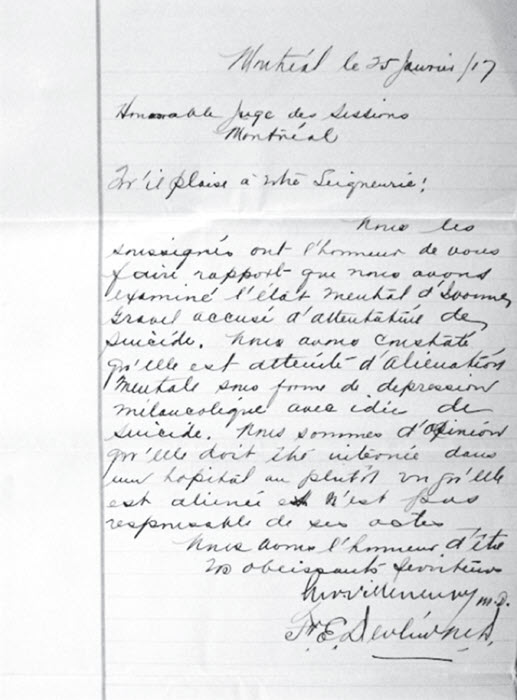 Montréal le 25 Janvier /17
Honorable Juge des Sessions
Montréal
Qu'il plaise à votre Seigneurie!
Nous les
soussignés ont l'honneur de vous
faire rapport que nous avons
examiné l'état mental d'Yvonne
Gravel accusé d'attentative de
suicide. Nous avons constaté
qu'elle est atteinte d'aliénation
mentale sous forme de depression
mélancolique avec idée de
suicide. Nous sommes d'opinion
qu'elle doit être internée dans
un hopital au plutôt vu qu'elle
est aliénée et n'est pas
responsable de ses actes
Nous avons l'honneur d'être
vos obeissants serviteurs
Villeneuve m.D.
F. E. Devlin M.D.